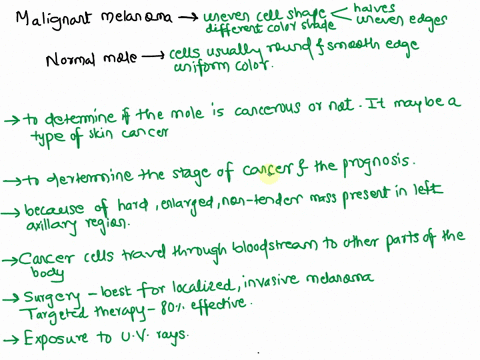 Malignant melanoma → uneven cell shape < halves
different color shade uneven edges
Normal mole → cells usually round & smooth edge
uniform color.
→ to determine if the mole is cancerous or not. It may be a
type of skin cancer
→ to dertermine the stage of cancer & the prognosis.
→ because of hard, enlarged, non-tender mass present in left
axillary region.
→ Cancer cells travel through bloodstream to other parts of the
body
→ Surgery - best for localized, invasive melanoma
Targeted therapy - 80% effective.
→ Exposure to U.V. rays.